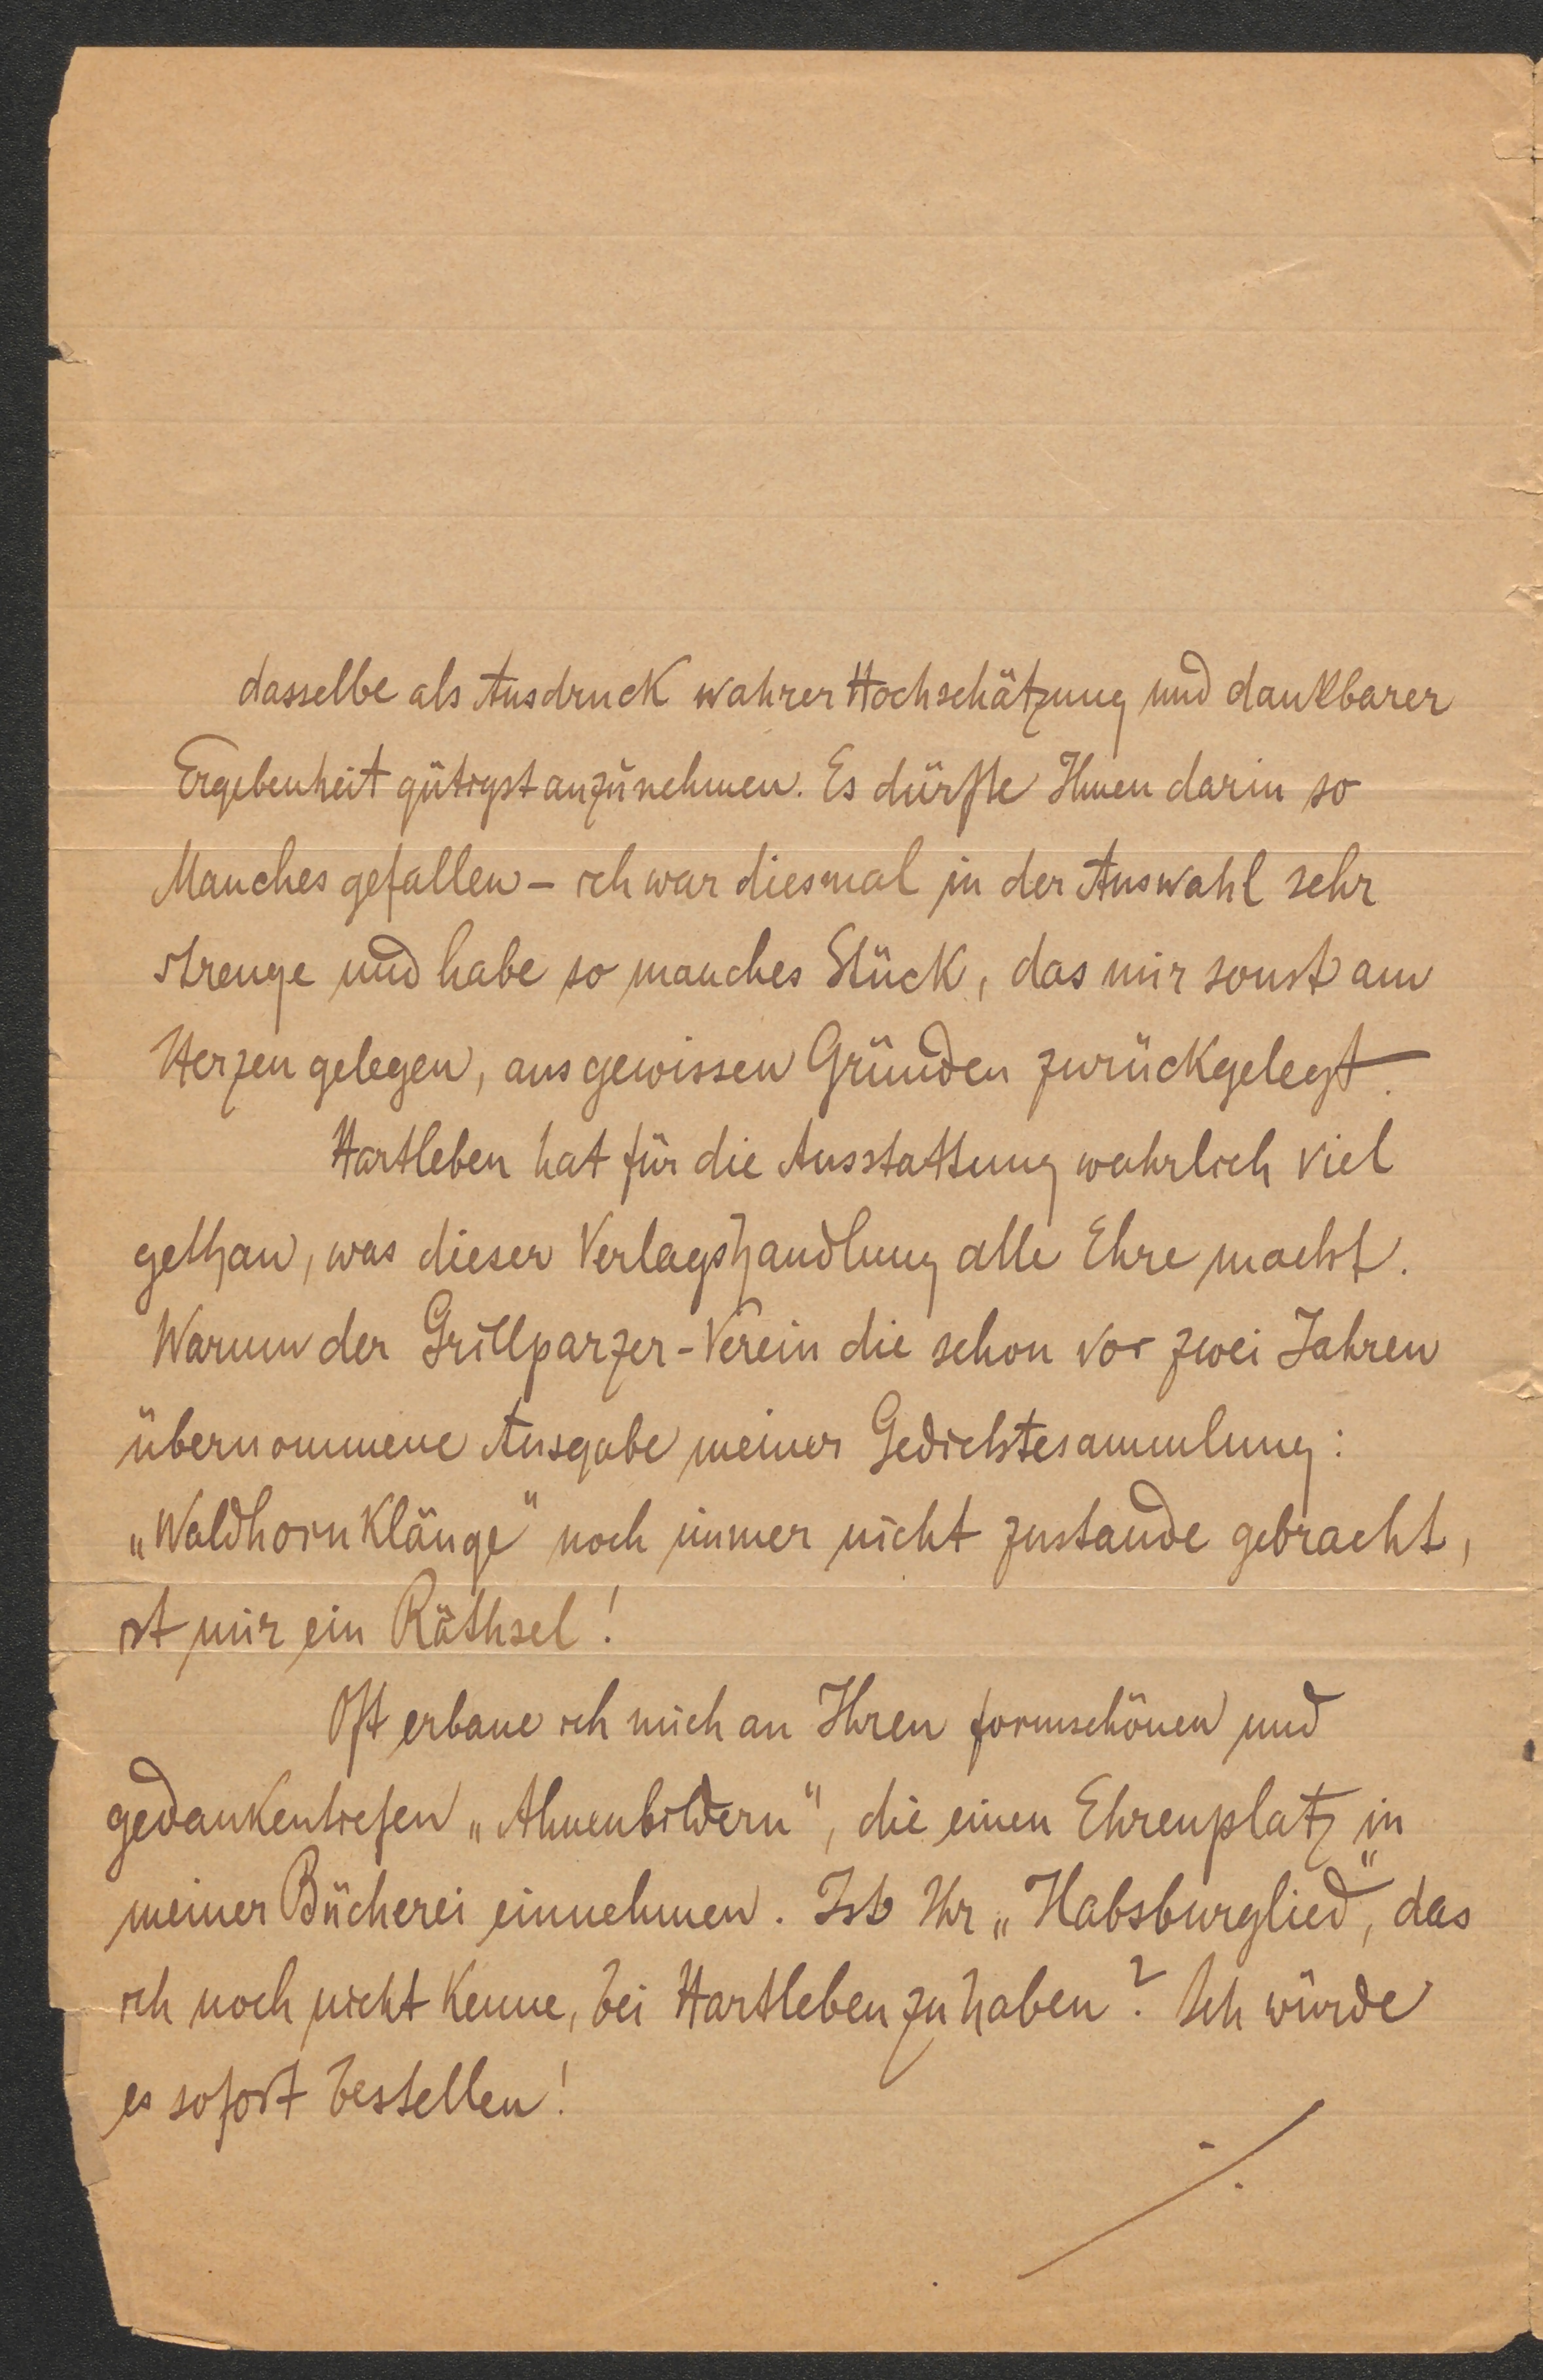 dasselbe als Ausdruck wahrer Hochschätzung und dankbarer
Ergebenheit gütigst anzunehmen. Es dürfte Ihnen darin so
Manches gefallen – ich war diesmal in der Auswahl sehr
strenge und habe so manches Stück, das mir sonst am
Herzen gelegen, aus gewissen Gründen zurückgelegt.
Hartleben hat für die Ausstattung wahrlich viel
gethan, was dieser Verlagshandlung alle Ehre macht.
Warum der Grillparzer-Verein die schon vor zwei Jahren
übernommene Ausgabe meiner Gedichtesammlung:
„Waldhornklänge" noch immer nicht zustande gebracht,
ist mir ein Räthsel!
Oft erbaue ich mich an Ihren formschönen und
gedankentiefen „Ahnenbildern", die einen Ehrenplatz in
meiner Bücherei einnehmen. Ist Ihr „Habsburglied", das
ich noch nicht kenne, bei Hartleben zu haben? Ich würde
es sofort bestellen!
./.